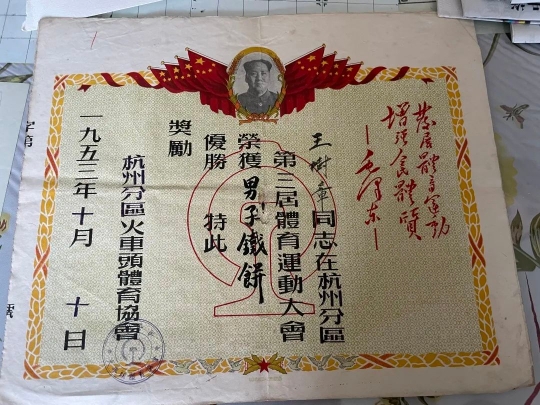 發展體育運動
增強人民體質
—毛澤東—
王樹章同志在杭州分區
第三屆體育運動大會
榮獲男子鐵餅
優勝 特此
獎勵
杭州分區火車頭體育協會
一九五三年十月 十日
字第